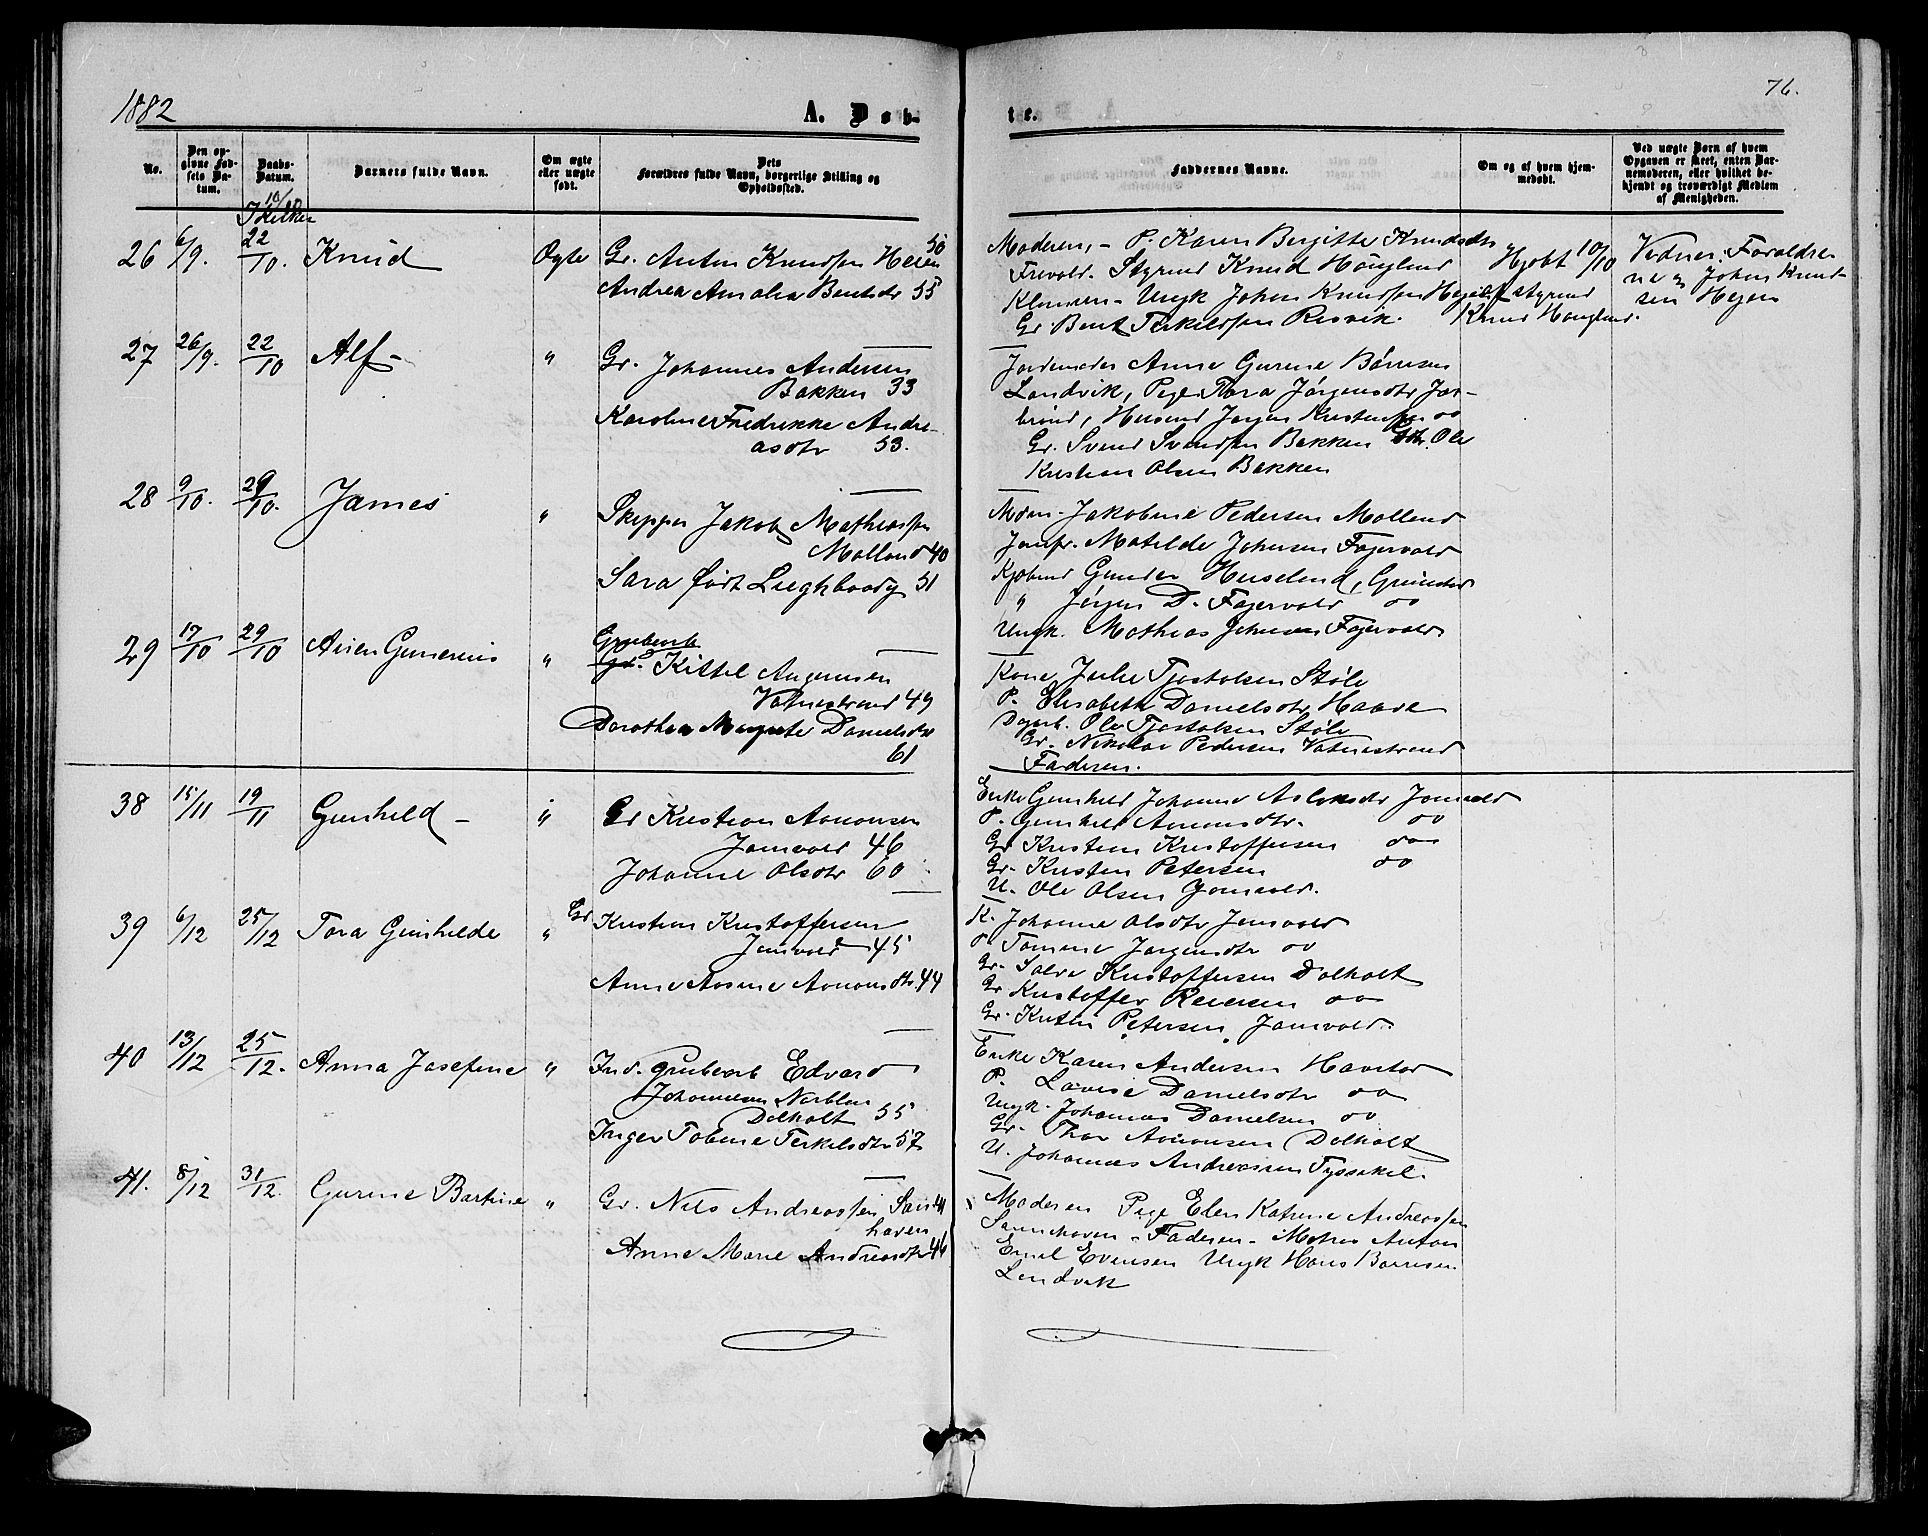 1882
A. Døb-
te.
76.
No.
Den op-
givne Fød-
sels Da-
tum.
Daabs-
Datum.
Barnets fulde Navn.
Om ægte
eller uægte
født.
Dets
Forældres fulde Navn, borgerlige Stilling og
Opholdssted.
Faddernes Navne.
Om og af hvem hjem-
medøbt.
Ved uægte Børn af hvem
Opgaven er skeet, enten Bar-
nemoderen, eller hvilket be-
kjendt og troværdigt Medlem
af Menigheden.
I Kirken
26 6/9. 22/10. Knud Ægte Gr. Anton Knudsen Heien 50
Andrea Amalia Bentsdr 55
Moderen, - P. Karen Birgitte Knudsdtr
Frevold. Styrmd Knud Hougland
Klemsen - Ungk Johan Knudssen Heien
Gr Bent Terkelssen Resvik.
Hjdbt 10/10
af styrmd
Knud Hougland.
Vidner: Foraldre-
ne og Johan Knud-
sen Hejen
27 26/9. 22/10 Alf - " Gr. Johannes Andersen
Bakken 33
Karoline Fredrikke Andre-
asdtr 53.
Jordemoder Anne Gurine Børresen
Landvik, Pige Tora Jørgensdtr Jor-
brond, Husmd Jorgen Kristensen oo
Gr. Svend Svendsen Bakken Ole
Kristian Olsen Bakken
28 9/10. 29/10. James " Skipper Jakob Mathiassen
Molland 40
Sara født Lieghboody 51
Mdm. Jakobine Pedersen Molland
Jomfr. Matilde Johnsen Fagervold
Kjøbmd Gunder Huseland, Grimstad
" Jörgen D. Fagervold oo
Ungk. Mathias Johnsen Fagervold
29 17/10 29/10 Anen Gunerius " Grubearb
Gr. Kittel Angensen
Vatnestrand 49
Dorothea Magrete Danielsdtr
61
Kone Julie Tjostolsen Støle
P. Elisabeth Danielsdtr Haave
Dgarb. Ole Tjostolsen Støle
Gr. Nikolai Pedersen Vatnestrand
Faderen.
38 15/11 19/11 Gunhild - " Gr Kristian Aanonsen
Jomvold 46
Johanne Olsdtr 60
Enke Gunhild Johanne Aslaksdr Jomvold
P. Gunhild Aanonsdtr. oo
Gr Kristian Kristoffersen oo
Gr. Kristen Petersen oo
U. Ole Olsen Jomvold.
39 6/12 25/12 Tora Gunhilde " Gr Kristian Kristoffersen
Jomvold 45
Anne Aasine Aanonsdtr 44
K. Johanne Olsdtr Jomvold
P. Tomine Jorgensdtr oo
Gr. Salve Kristoffersen Dolholt
Gr Kristoffer Reiersen oo
Gr. Kristen Petersen Jomvold.
40 13/12 25/12. Anna Josefine " Ind. grubearb Edvard
Johannesen
Dolholt 55
Inger Tobine Terkelsdtr 57
Enke Karen Andersen Havstad
P. Lovise Danielsdtr oo
Ungk. Johannes Danielsen oo
Gr. Thor Aanonsen Dolholt
U. Johannes Andreassen Tyssekil.
41. 8/12 31/12. Gurine Bertine " Gr. Nils Andreassen San 41
haven
Anne Marie Andreasdtr 46
Moderen Pige Elen Katrine Andreassen
Sannehaven - Faderen - Matros Anton
Emil Evensen Ungk Hans Børresen
Landvik